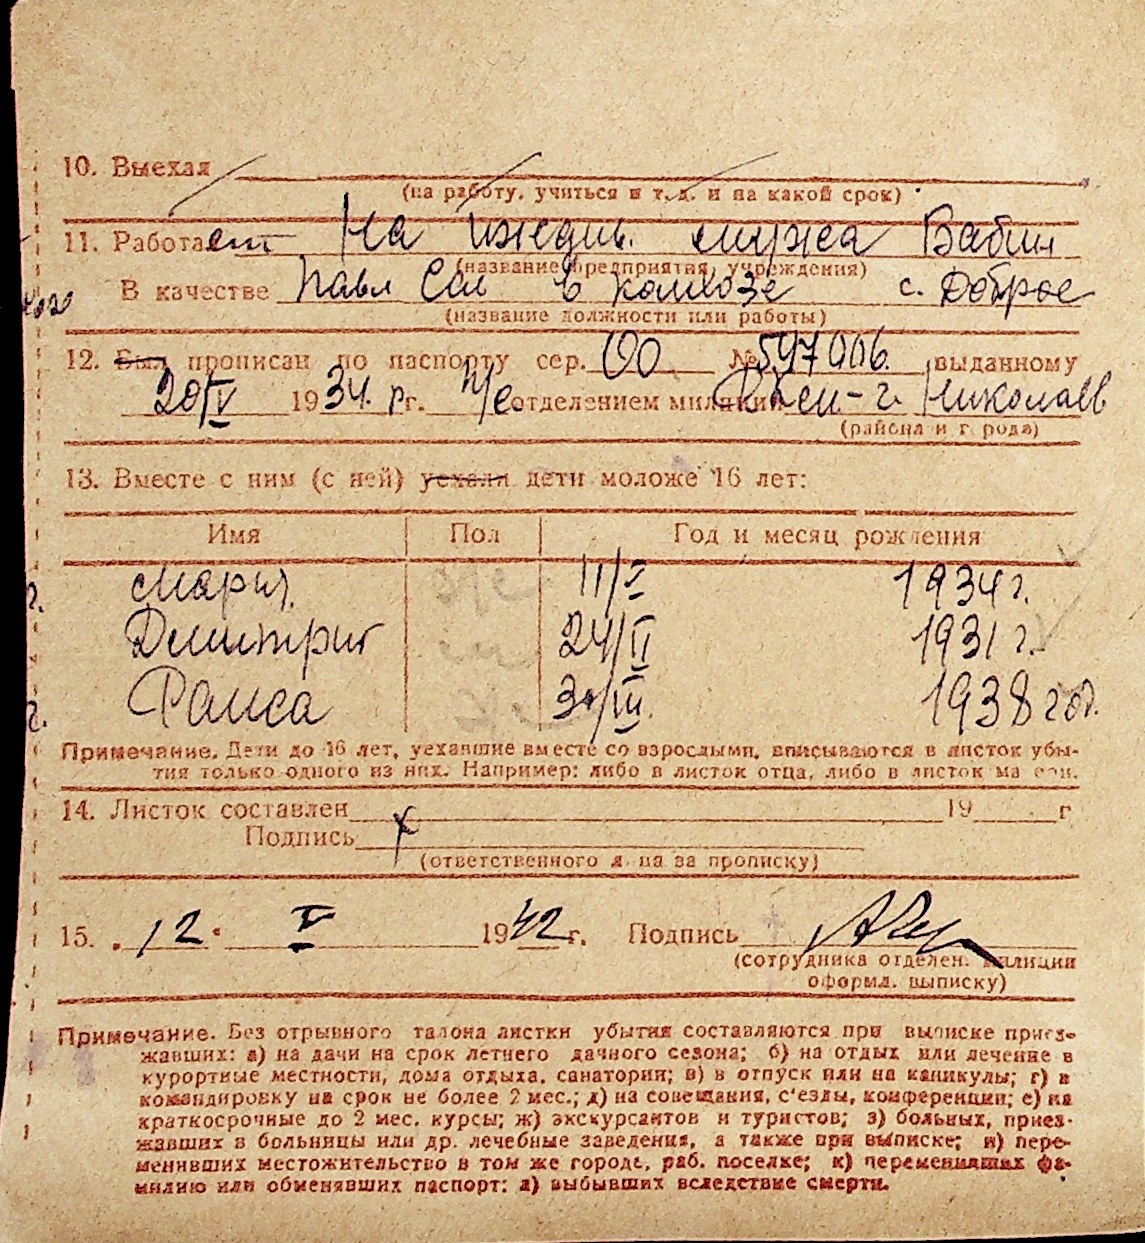 10. Выехал
(на работу, учиться и т. д. и на какой срок)
11. Работает На иждив. мужа Бабин
(название предприятия, учреждения)
В качестве Павл Сем в колхозе с. Доброе
(название должности или работы)
12. Был прописан по паспорту сер. ОО № 597006. выданному
20/V 1934. г. отделением милиции г. Николаев
(района и города)
13. Вместе с ним (с ней) уехали дети моложе 16 лет:
Имя Пол Год и месяц рождения
Мария 11/V 1934 г.
Димитрий 24/II 1931 г.
Раиса 30/III. 1938 год.
Примечание. Дети до 16 лет, уехавшие вместе со взрослыми, вписываются в листок убы-
тия только одного из них. Например: либо в листок отца, либо в листок матери.
14. Листок составлен 19 г
Подпись
(ответственного л на за прописку)
15. 12. V 1942 г. Подпись
(сотрудника отделен. милиции
оформл. выписку)
Примечание. Без отрывного талона листки убытия составляются при выписке приез-
жавших: а) на дачи на срок летнего дачного сезона; б) на отдых или лечение в
курортные местности, дома отдыха, санатории; в) в отпуск или на каникулы; г) в
командировку на срок не более 2 мес.; д) на совещания, с'езды, конференции; е) на
краткосрочные до 2 мес. курсы; ж) экскурсантов и туристов; з) больных, приез-
жавших в больницы или др. лечебные заведения, а также при выписке; и) пере-
менивших местожительство в том же городе, раб. поселке; к) переменивших фа-
милию или обменявших паспорт; л) выбывших вследствие смерти.